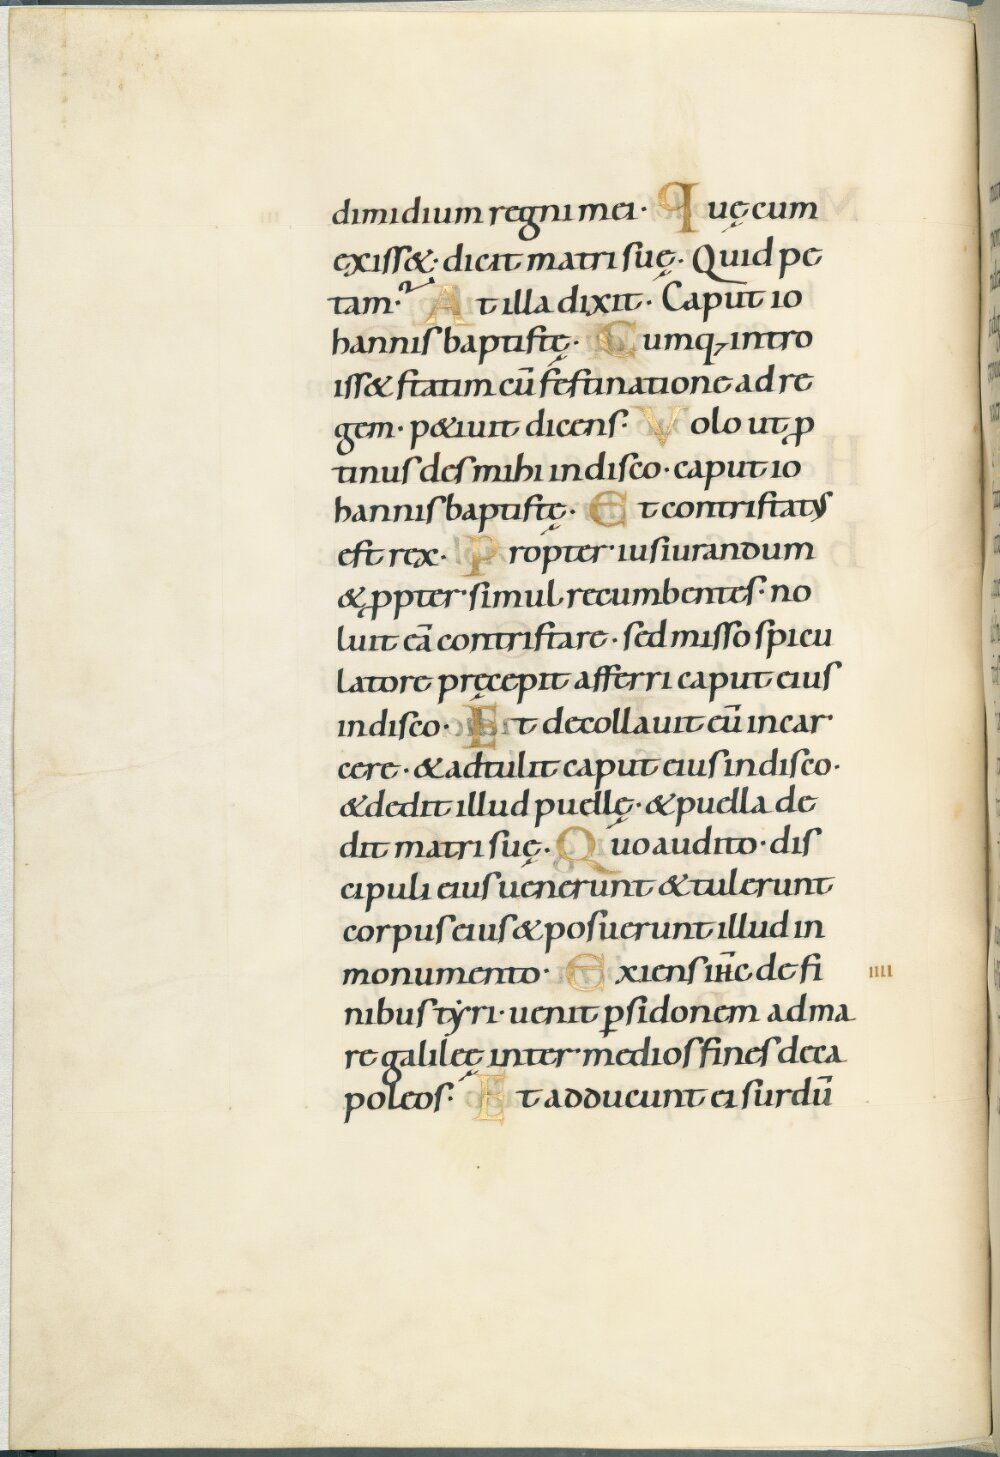 dimidium regni mei· Quę cum
exiss&· dicit matri suę· Quid pe
tam·? At illa dixit· Caput io
hannis baptistę· Cumq; intro
iss& statim cū festinatione ad re
gem· p&iuit dicens· Volo ut ꝓ
tinus des mihi in disco· caput io
hannis baptistę· Et contristatus
est rex· Propter iusiurandum
& ꝓpter simul recumbentes· no
luit eā contristare· sed misso spicu
latore pręcepit afferri caput eius
in disco· Et decollauit eū in car
cere· & adtulit caput eius in disco·
& dedit illud puellę· & puella de
dit matri suę· Quo audito· dis
cipuli eius uenerunt & tulerunt
corpus eius & posuerunt illud in
monumento· Exiens iħc de fi
IIII
nibus tyri· uenit ꝑ sidonem ad ma
re galileę inter medios fines deca
poleos· Et adducunt ei surdū